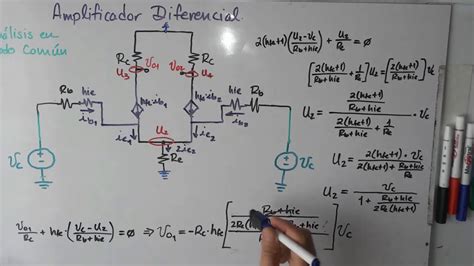 Amplificador Diferencial
Análisis en
Modo Común
Rc
Rc
U3
Vo1
Vo2
U4
Rb
hie
ib1
hfe ib1
hfe ib2
hie
ib2
Rb
ie1
U2
ie2
2ie2
Re
Vc
Vc
2(hfe+1)(U2-Vc / Rb+hie) + U2/Re = 0
[2(hfe+1) / Rb+hie + 1/Re] U2 = [2(hfe+1) / Rb+hie] Vc
U2 = (2(hfe+1) / Rb+hie) / (2(hfe+1) / Rb+hie + 1/Re) · Vc
U2 = 2(hfe+1) · Vc / (2(hfe+1) + Rb+hie / Re)
U2 = Vc / (1 + Rb+hie / 2Re(hfe+1))
Vo1/Rc + hfe (Vc-U2 / Rb+hie) = 0 ⇒ Vo1 = -Rc·hfe [ Rb+hie / 2Re(hfe+1)+Rb+hie ] Vc